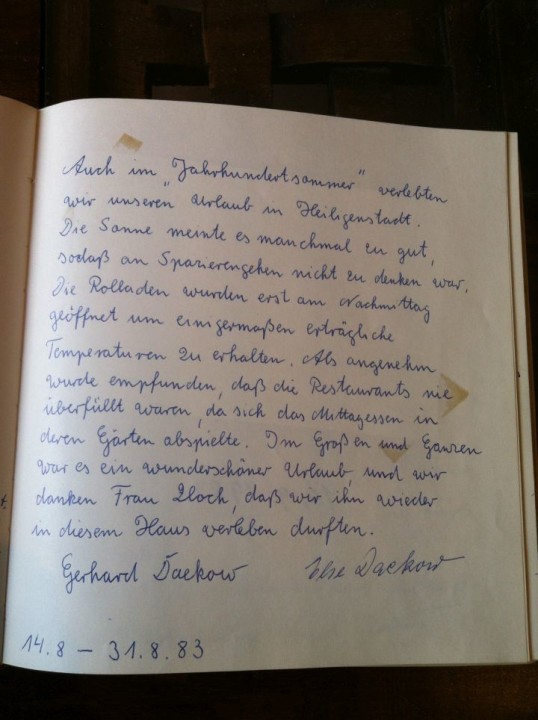 Auch im "Jahrhundertsommer" verlebten
wir unseren Urlaub in Heiligenstadt.
Die Sonne meinte es manchmal zu gut,
sodaß an Spazierengehen nicht zu denken war.
Die Rolladen wurden erst am Nachmittag
geöffnet um einigermaßen erträgliche
Temperaturen zu erhalten. Als angenehm
wurde empfunden, daß die Restaurants nie
überfüllt waren, da sich das Mittagessen in
deren Gärten abspielte. Im Großen und Ganzen
war es ein wunderschöner Urlaub, und wir
danken Frau, daß wir ihn wieder
in diesem Haus verleben durften.
Gerhard Dackow Ilse Dackow
14.8 – 31.8.83